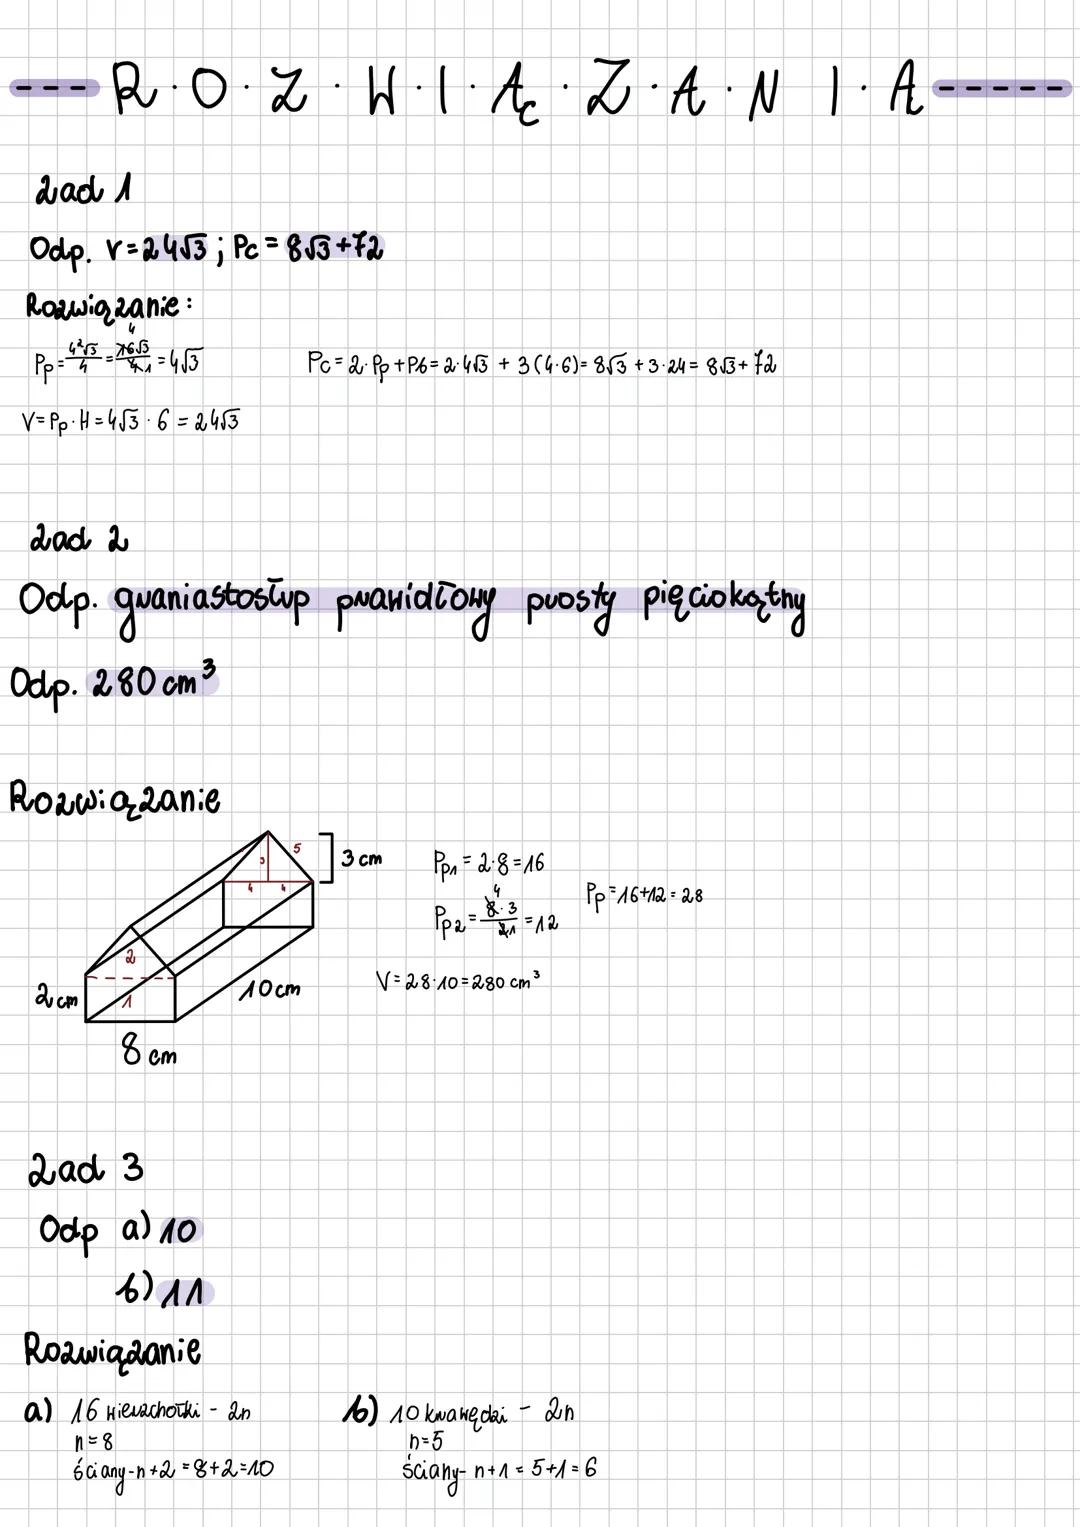 --- R·O·Z·W·I·Ą·Z·A·N I·A -----
Zad 1
Odp. V=24√3 ; Pc = 8√3+72
Rozwiązanie:
Pp = 4²√3/4 = 16√3/4 = 4√3
4
1
Pc = 2·Pp + Pb = 2·4√3 + 3(4·6) = 8√3 + 3·24 = 8√3 + 72
V = Pp · H = 4√3 · 6 = 24√3
Zad 2
Odp. graniastosłup prawidłowy prosty pięciokątny
Odp. 280 cm³
Rozwiązanie
3 5
4 4
3 cm
2
1
2 cm
10 cm
8 cm
Pp₁ = 2·8 = 16
4
Pp₂ = 8·3/2 = 12
1
Pp = 16+12 = 28
V = 28·10 = 280 cm³
Zad 3
Odp a) 10
b) 11
Rozwiązanie
a) 16 wierzchołki - 2n
n = 8
ściany - n+2 = 8+2 = 10
b) 10 krawędzi - 2n
n=5
ściany - n+1 = 5+1 = 6